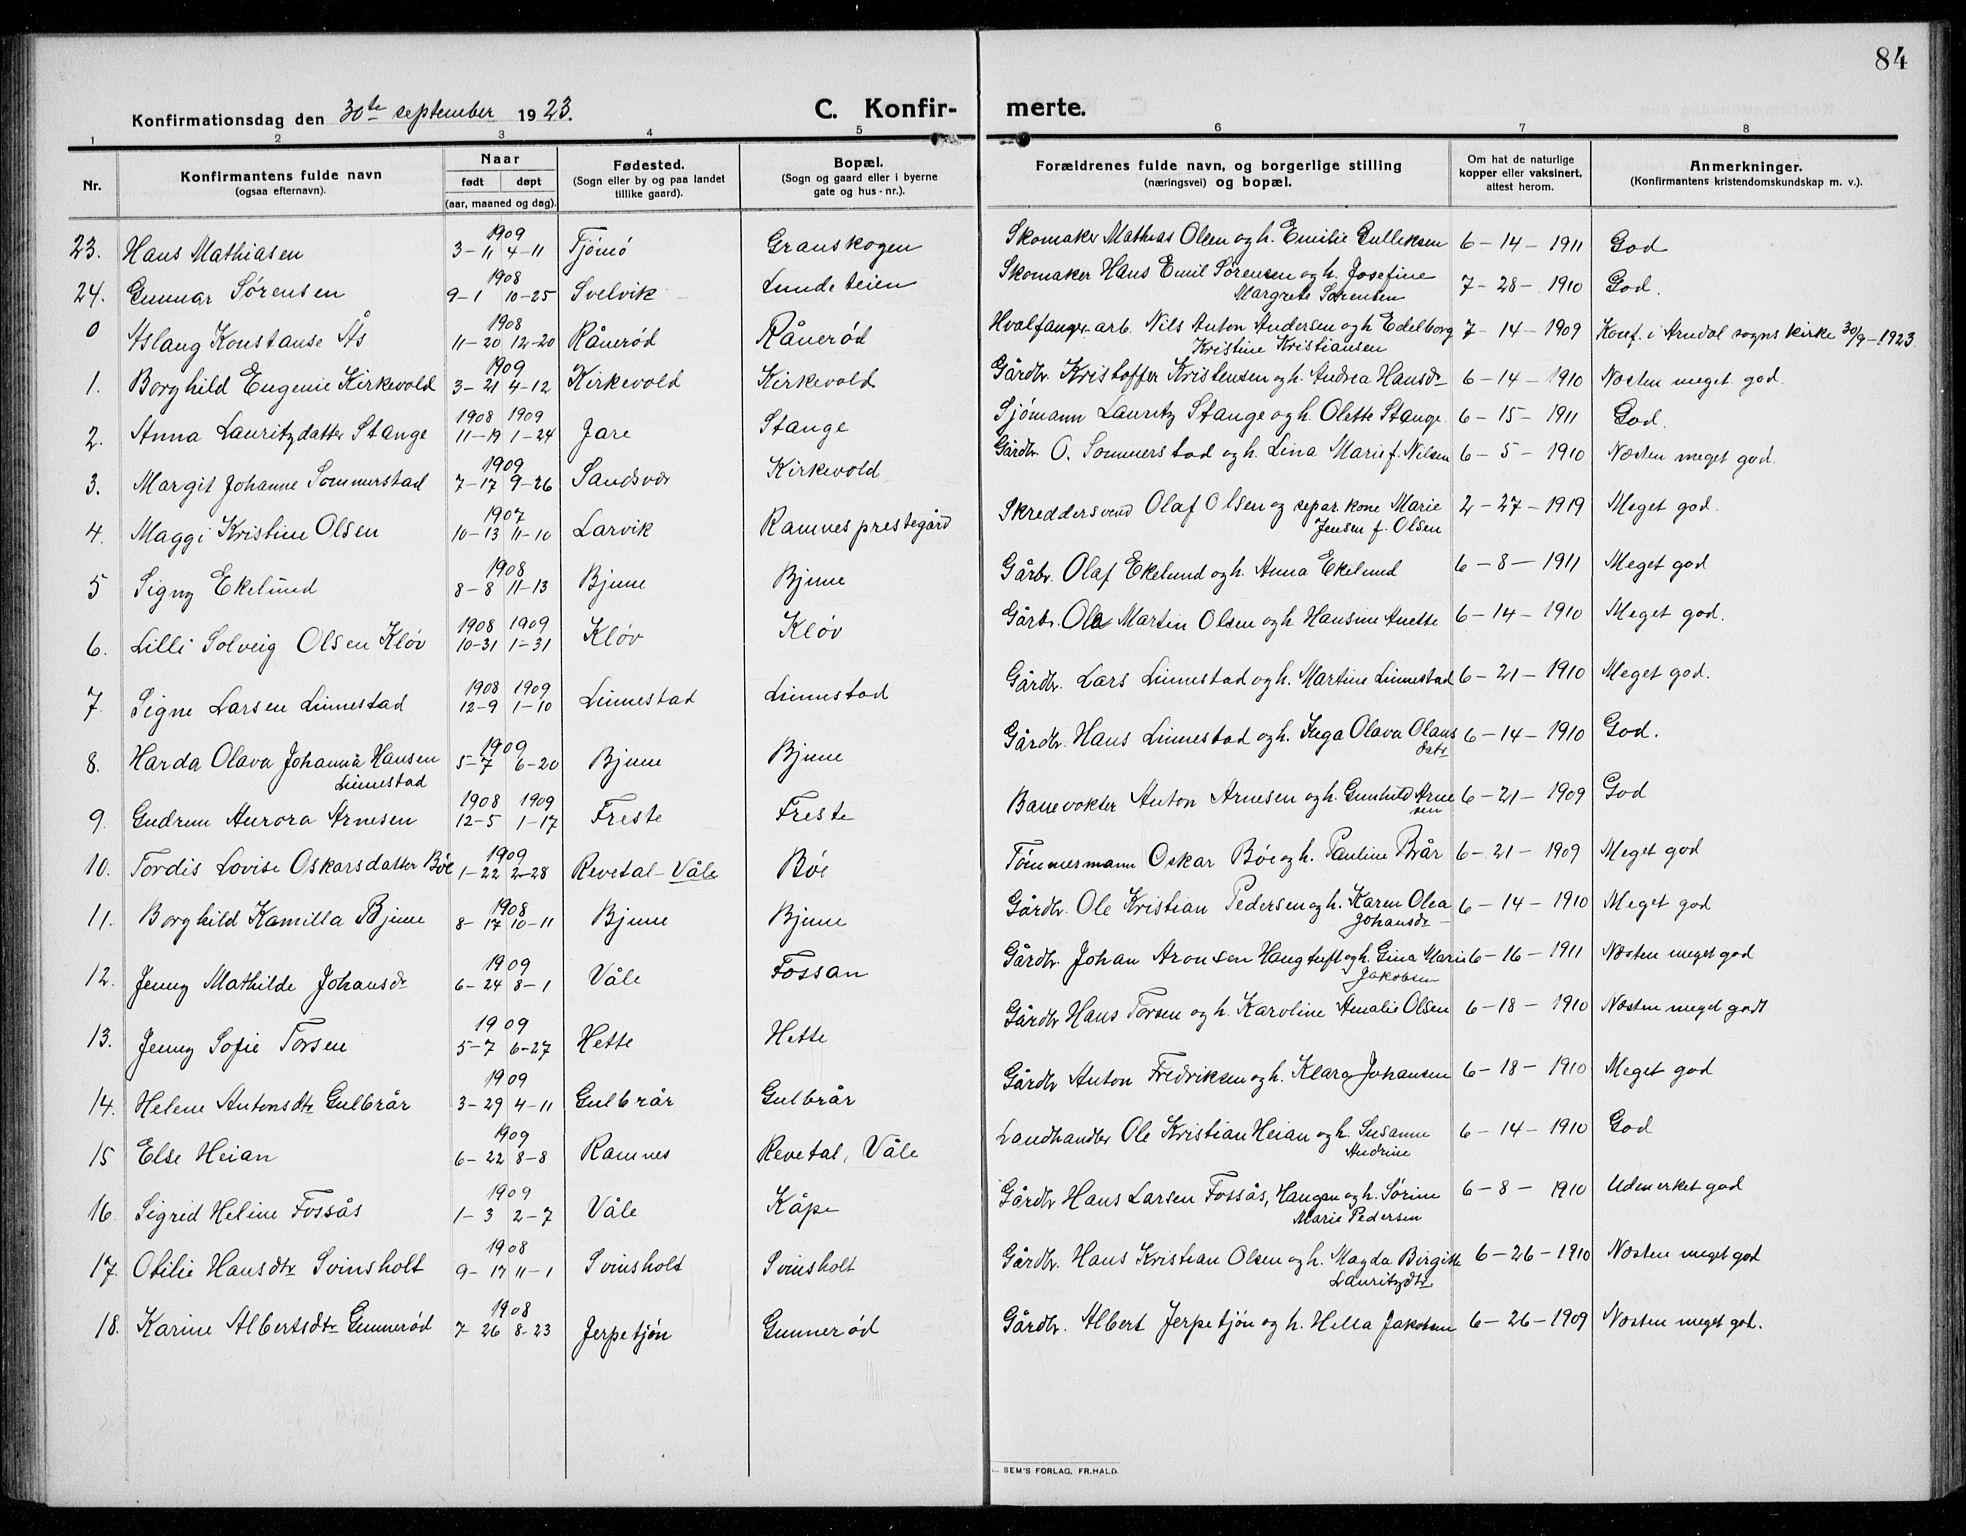 84
Konfirmationsdag den 30te september 1923.
C. Konfir-
merte.
1 2 3 4 5 6 7 8
Nr.
Konfirmantens fulde navn
(ogsaa efternavn).
Naar
født døpt
(aar, maaned og dag).
Fødested.
(Sogn eller by og paa landet
tillike gaard).
Bopæl.
(Sogn og gaard eller i byerne
gate og hus-nr.).
Forældrenes fulde navn, og borgerlige stilling
(næringsvei) og bopæl.
Om hat de naturlige
kopper eller vaksinert,
attest herom.
Anmerkninger.
(Konfirmantens kristendomskundskap m. v.).
1909
23. Hans Mathiasen 3-11 4-11 Tjømø Granskogen Skomaker Mathias Olsen og h. Emilie Gulliksen 6-14-1911 God
1908
24. Gunnar Sørensen 9-1 10-25 Svelvik Lundeteien Skomaker Hans Emil Sørensen og h. Josefine 7-28-1910 God.
Margrete Sørensen
1908
0 Aslaug Konstanse Ås 11-20 12-20 Rånerød Rånerød Hvalfanger-arb. Nils Anton Andersen og h Edelborg 7-14-1909 Konf. i Arndal sogns kirke 30/9-1923
Kristine Kristiansen
1909
1. Borghild Eugenie Kirkevold 3-21 4-12 Kirkevold Kirkevold Gårdbr. Kristoffer Kristensen og h. Andrea Hansdr 6-14-1910 Næsten meget god.
1908 1909
2. Anna Lauritzdatter Stange 11-19 1-24 Jare Stange Sjømann Lauritz Stange og h. Olette Stange 6-15-1911 God.
1909
3. Margit Johanne Sommerstad 7-17 9-26 Sandsvær Kirkevold Gårdbr. O. Sommerstad og h. Lina Marie f. Nilsen 6-5-1910 Næsten meget god.
1907
4. Maggi Kristine Olsen 10-13 11-10 Larvik Ramnes prestegård Skreddersvend Olaf Olsen og separ. kone Marie 2-27-1919 Meget god.
Jensen f. Olsen
1908
5 Signy Ekelund 8-8 11-13 Bjune Bjune Gårbr. Olaf Ekelund og h. Anna Ekelund 6-8-1911 Meget god
1908 1909
6. Lilli Solveig Olsen Kløv 10-31 1-31 Kløv Kløv Gårbr. Ole Martin Olsen og h. Hansine Anette 6-14-1910 Meget god.
1908 1909
7. Signe Larsen Linnestad 12-9 1-10 Linnestad Linnestad Gårdbr. Lars Linnestad og h. Martine Linnestad 6-21-1910 Meget god.
1909
8. Harda Olava Johanna Hansen 5-7 6-20 Bjune Bjune Gårdbr. Hans Linnestad og h. Inga Olava Olaus 6-14-1910 God.
Linnestad datr
1908 1909
9. Gudrun Aurora Arnesen 12-5 1-17 Freste Freste Banevokter Anton Arnesen og h. Gunhild Arne 6-21-1909 God
sen
1909
10. Tordis Lovise Oskarsdatter Bøe 1-22 2-28 Revetal-Våle Bøe Tømmermann Oskar Bøe og h. Pauline Brår 6-21-1909 Meget god
1908
11. Borghild Kamilla Bjune 8-17 10-11 Bjune Bjune Gårdbr. Ole Kristian Pedersen og h. Karen Olea 6-14-1910 Meget god
Johansdr
1909
12. Jenny Mathilde Johansdr 6-24 8-1 Våle Fossan Gårdbr. Johan Aronsen Haugtuft og h. Gina Marie 6-16-1911 Næsten meget god
Jakobsen
1909
13. Jenny Sofie Torsen 5-7 6-27 Hette Hette Gårdbr Hans Torsen og h. Karoline Amalie Olsen 6-18-1910 Næsten meget godt
1909
14. Helene Antonsdtr Gulbrår 3-29 4-11 Gulbrår Gulbrår Gårdbr. Anton Fredriksen og h. Klara Johansen 6-18-1910 Meget god
1909
15 Else Heian 6-22 8-8 Ramnes Revetal, Våle Landhandler Ole Kristian Heian og h. Susanne 6-14-1910 God
Andrine
1909
16. Sigrid Heline Fossås 1-3 2-7 Våle Kåpe Gårdbr Hans Larsen Fossås, Haugan og h. Sørine 6-8-1910 Udmerket god
Marie Pedersen
1908
17. Otilie Hansdtr Svinsholt 9-17 11-1 Svinsholt Svinsholt Gårdbr. Hans Kristian Olsen og h. Magda Birgitte 6-26-1910 Næsten meget god
Lauritzdtr
1908
18. Karine Albertsdtr Gunnerød 7-26 8-23 Jerpetjøn Gunnerød Gårdbr. Albert Jerpetjøn og h. Hella Jakobsen 6-26-1909 Næsten meget god.
SEM'S FORLAG, FR.HALD.